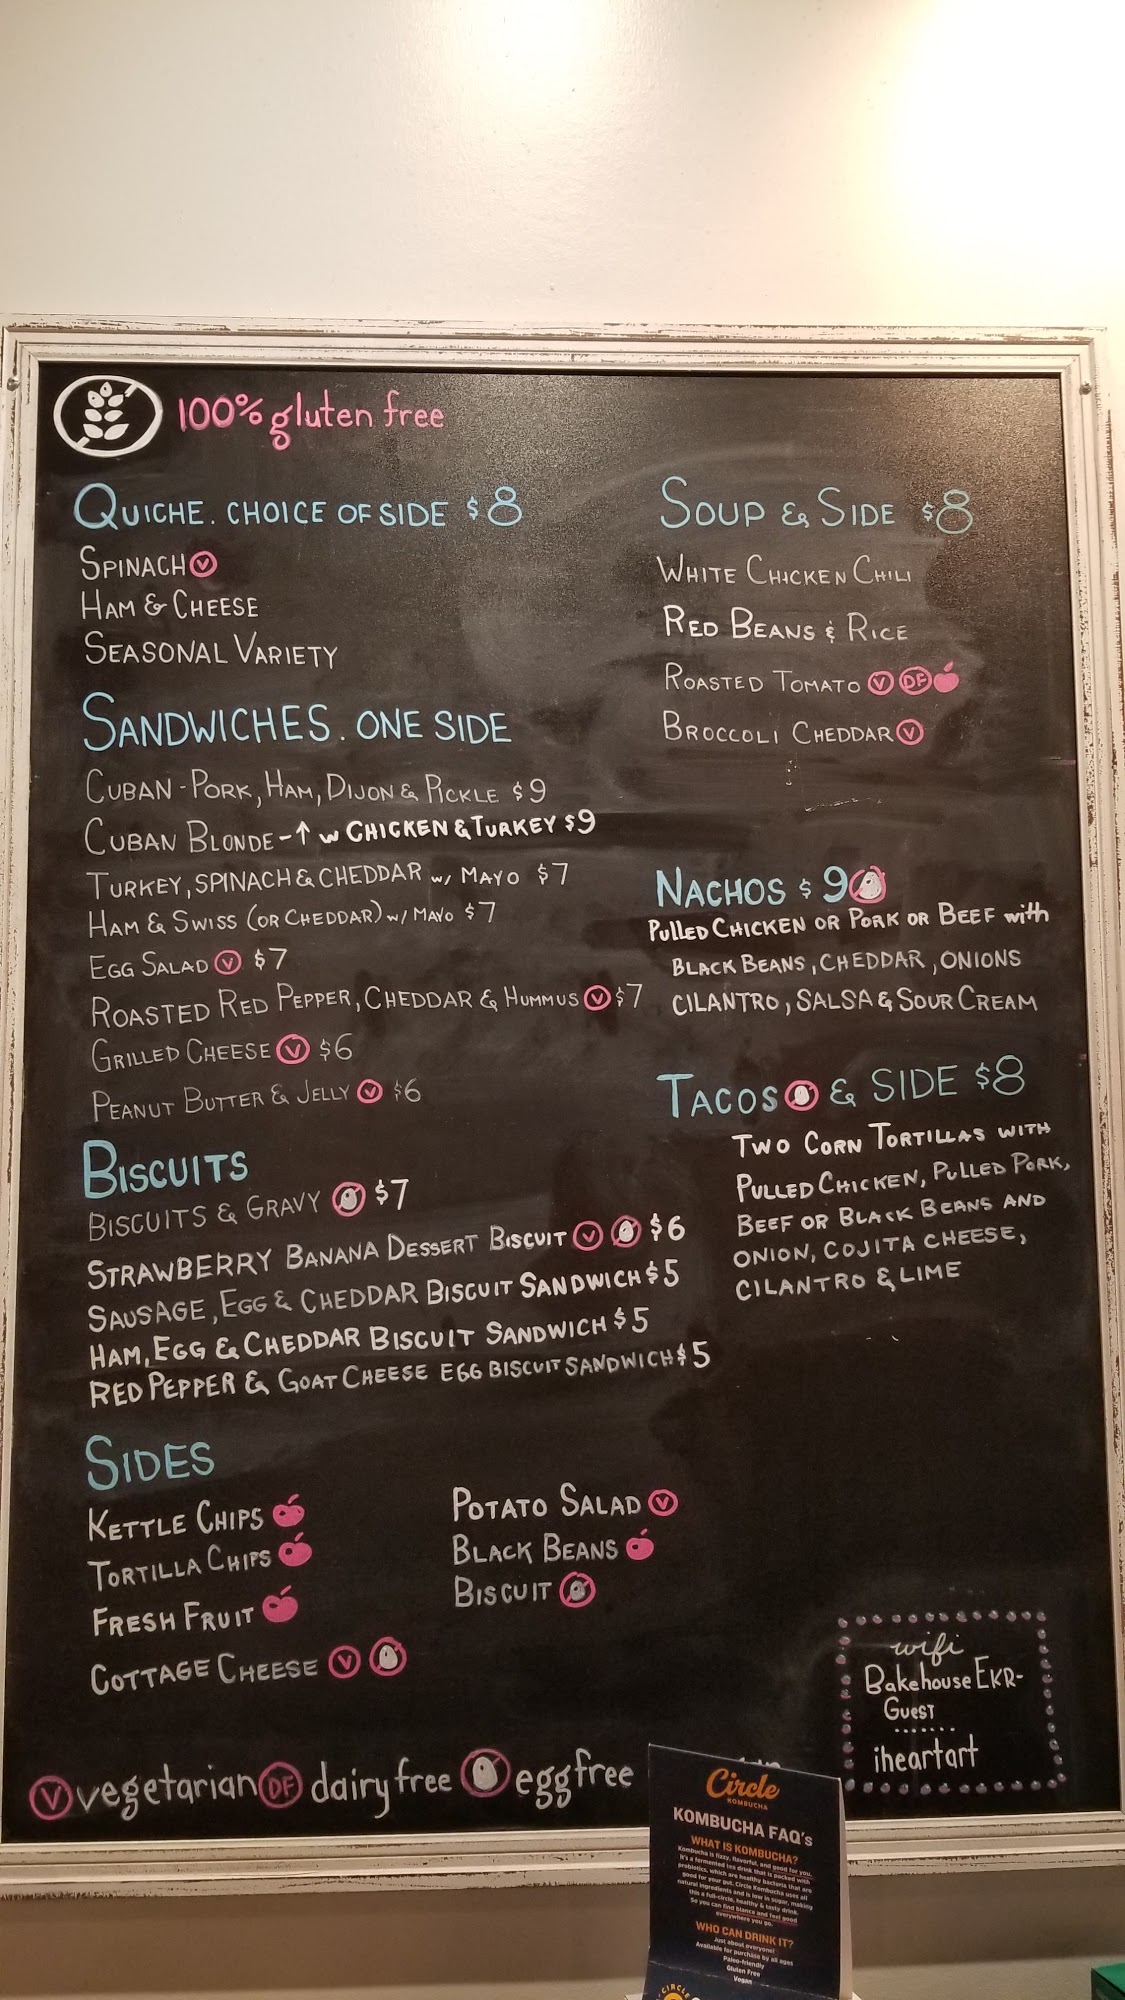 100% gluten free
QUICHE. CHOICE OF SIDE $8
SPINACH V
HAM & CHEESE
SEASONAL VARIETY
SANDWICHES. ONE SIDE
CUBAN - PORK, HAM, DIJON & PICKLE $9
CUBAN BLONDE - ↑ w CHICKEN & TURKEY $9
TURKEY, SPINACH & CHEDDAR w/ MAYO $7
HAM & SWISS (OR CHEDDAR) w/ MAYO $7
EGG SALAD V $7
ROASTED RED PEPPER, CHEDDAR & HUMMUS V $7
GRILLED CHEESE V $6
PEANUT BUTTER & JELLY V $6
BISCUITS
BISCUITS & GRAVY $7
STRAWBERRY BANANA DESSERT BISCUIT V $6
SAUSAGE, EGG & CHEDDAR BISCUIT SANDWICH $5
HAM, EGG & CHEDDAR BISCUIT SANDWICH $5
RED PEPPER & GOAT CHEESE EGG BISCUIT SANDWICH $5
SIDES
KETTLE CHIPS
TORTILLA CHIPS
FRESH FRUIT
COTTAGE CHEESE V
POTATO SALAD V
BLACK BEANS
BISCUIT
SOUP & SIDE $8
WHITE CHICKEN CHILI
RED BEANS & RICE
ROASTED TOMATO V DF
BROCCOLI CHEDDAR V
NACHOS $9
PULLED CHICKEN OR PORK OR BEEF with
BLACK BEANS, CHEDDAR, ONIONS
CILANTRO, SALSA & SOUR CREAM
TACOS & SIDE $8
TWO CORN TORTILLAS WITH
PULLED CHICKEN, PULLED PORK,
BEEF OR BLACK BEANS AND
ONION, COJITA CHEESE,
CILANTRO & LIME
wifi
Bakehouse EKR-
Guest
iheartart
V vegetarian DF dairy free egg free
Circle
KOMBUCHA
KOMBUCHA FAQ's
WHAT IS KOMBUCHA?
Kombucha is fizzy, flavorful, and good for you.
It's a fermented tea drink that is packed with
probiotics, which are healthy bacteria that are
good for your gut. Circle Kombucha uses all
natural ingredients and is low in sugar, making
this a full-circle, healthy & tasty drink.
So you can find blance and feel good
everywhere you go.
WHO CAN DRINK IT?
Just about everyone!
Available for purchase by all ages
Paleo-friendly
Gluten Free
Vegan
CIRCLE